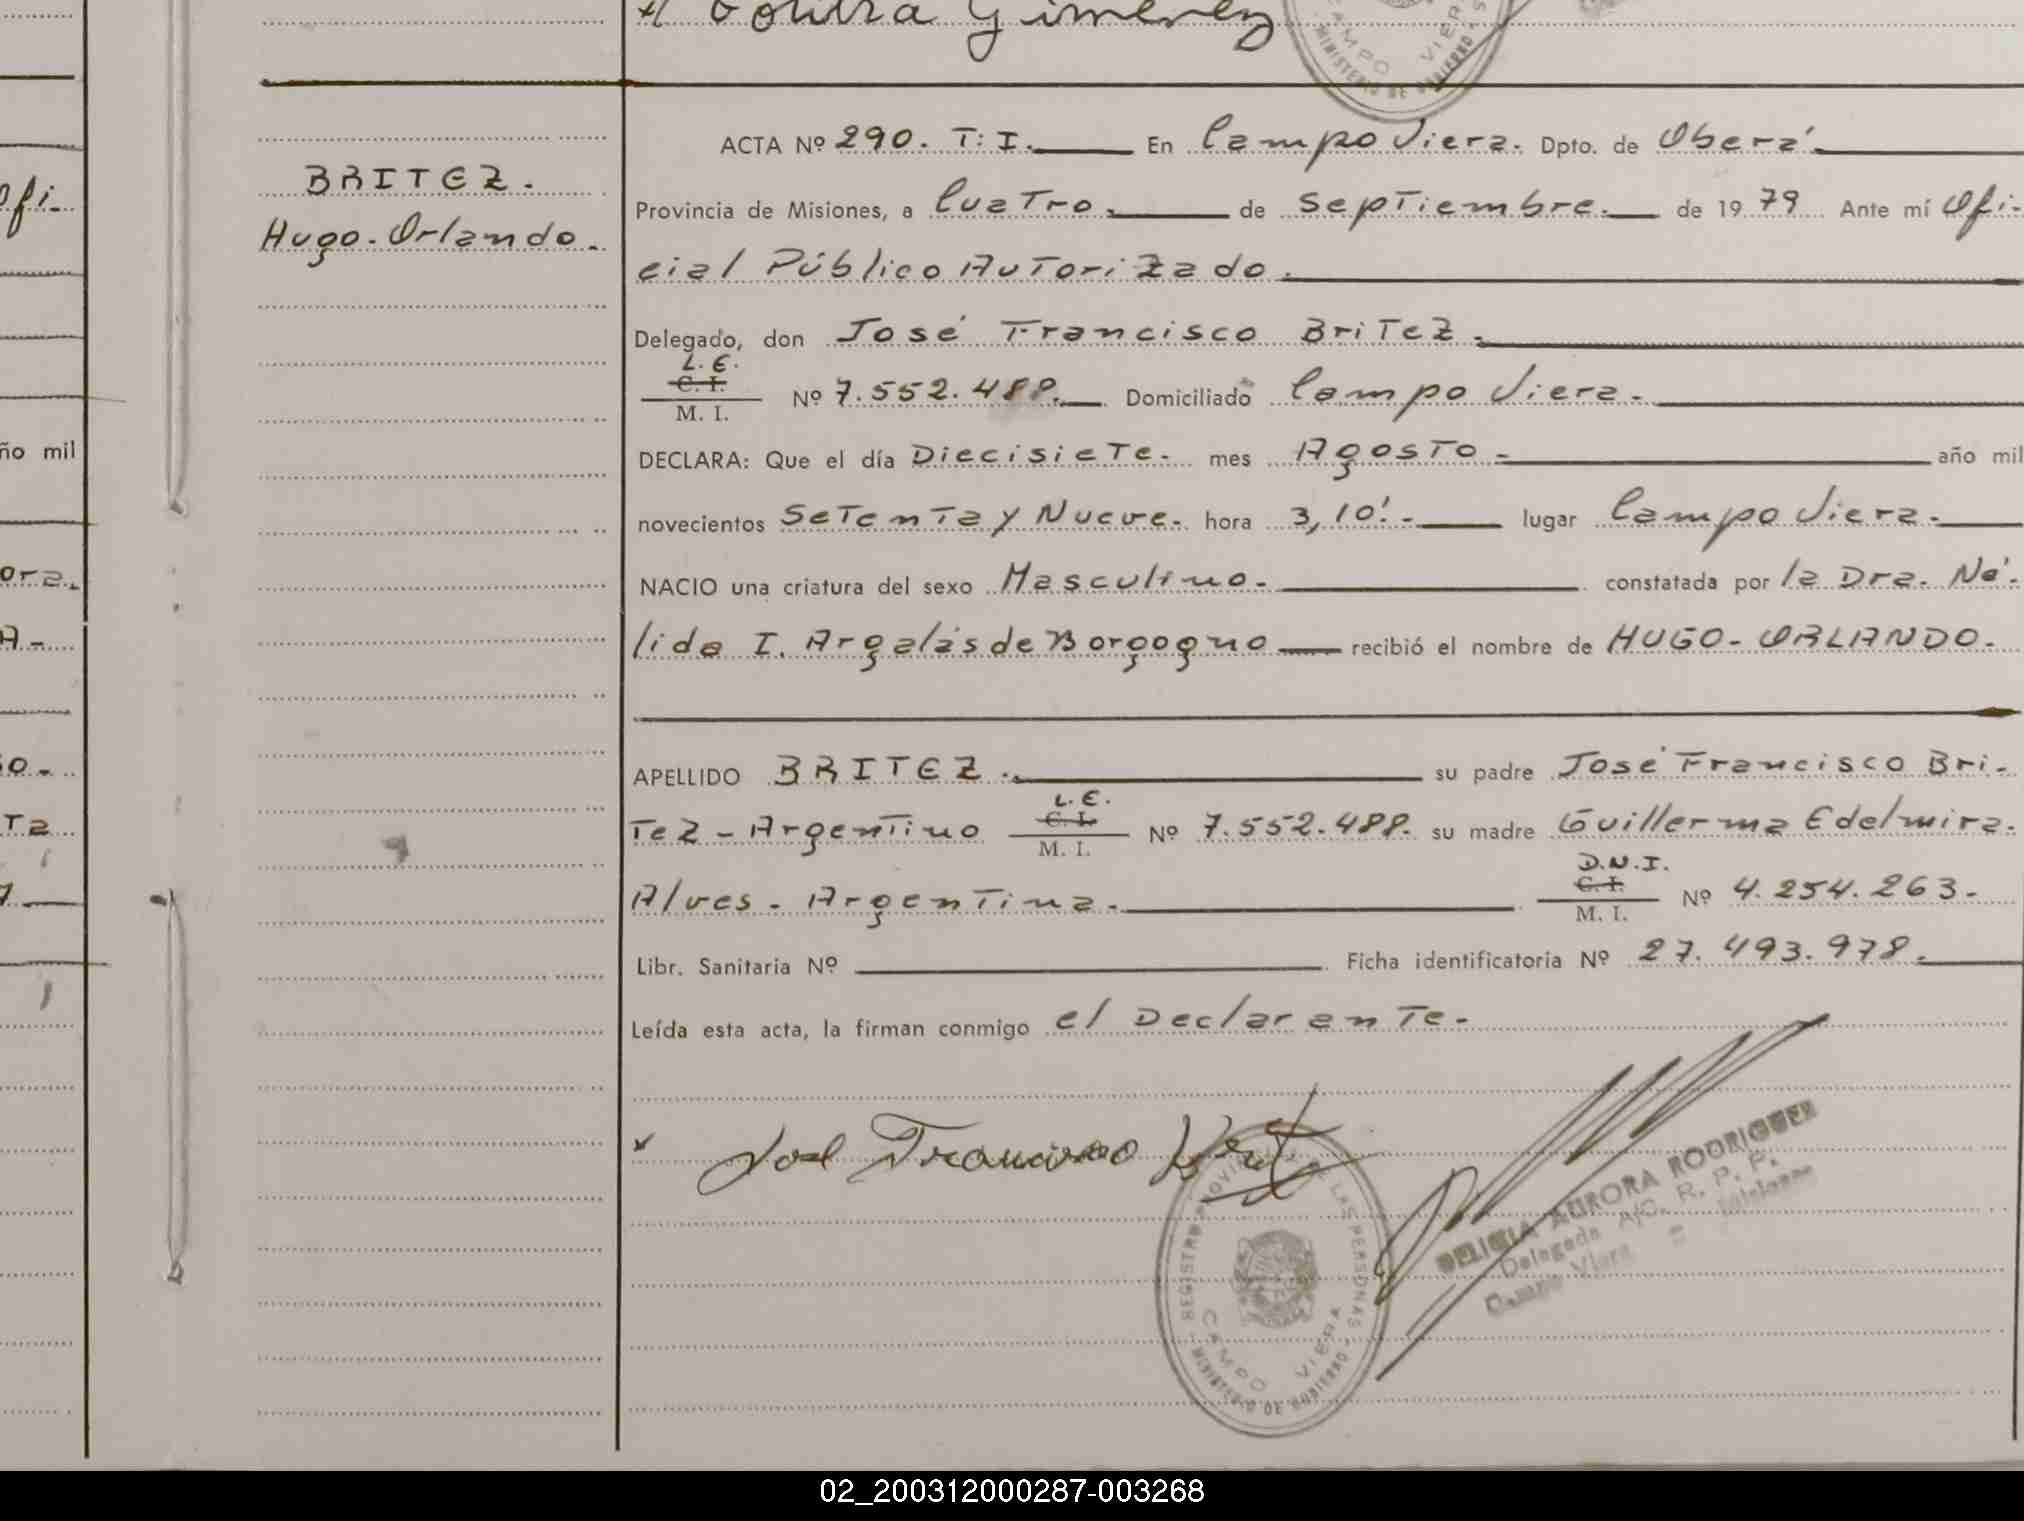 Gimenez
ACTA Nº 290. T: I. En Campo Viera. Dpto. de Oberá.
BRITEZ.
Hugo-Orlando.
Provincia de Misiones, a Cuatro. de Septiembre. de 1979 Ante mí Ofi-
cial Público Autorizado.
Delegado, don José Francisco Britez.
L.E.
C. I.
M. I.
Nº 7.552.488. Domiciliado Campo Viera.
DECLARA: Que el día Diecisiete. mes Agosto - año mil
novecientos Setenta y Nueve. hora 3,10'.- lugar Campo Viera.
NACIO una criatura del sexo Masculino. constatada por la Dra. Né-
lida I. Argalás de Borgogno recibió el nombre de HUGO-ORLANDO.
APELLIDO BRITEZ. su padre José Francisco Bri-
L.E.
C. I.
M. I.
tez - Argentino Nº 7.552.488. su madre Guillerma Edelmira.
D.N.I.
C. I.
M. I.
Alves - Argentina. Nº 4.254.263.
Libr. Sanitaria Nº Ficha identificatoria Nº 27.493.978.
Leída esta acta, la firman conmigo el Declarante.
José Francisco Brit
REGISTRO PROVINCIAL DE LAS PERSONAS
MINISTERIO DE GOBIERNO
CAMPO VIERA
DELICIA AURORA RODRIGUEZ
Delegada A/C. R. P. P.
Campo Viera Misiones
ofi-
ño mil
ora.
A-
so-
ta
02_200312000287-003268